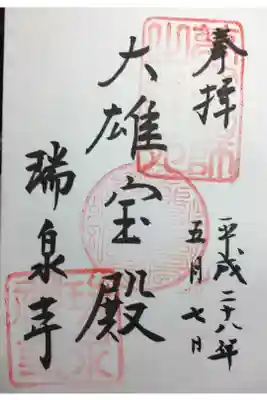 奉拝
平成二十八年
五月七日
大雄宝殿
瑞泉寺